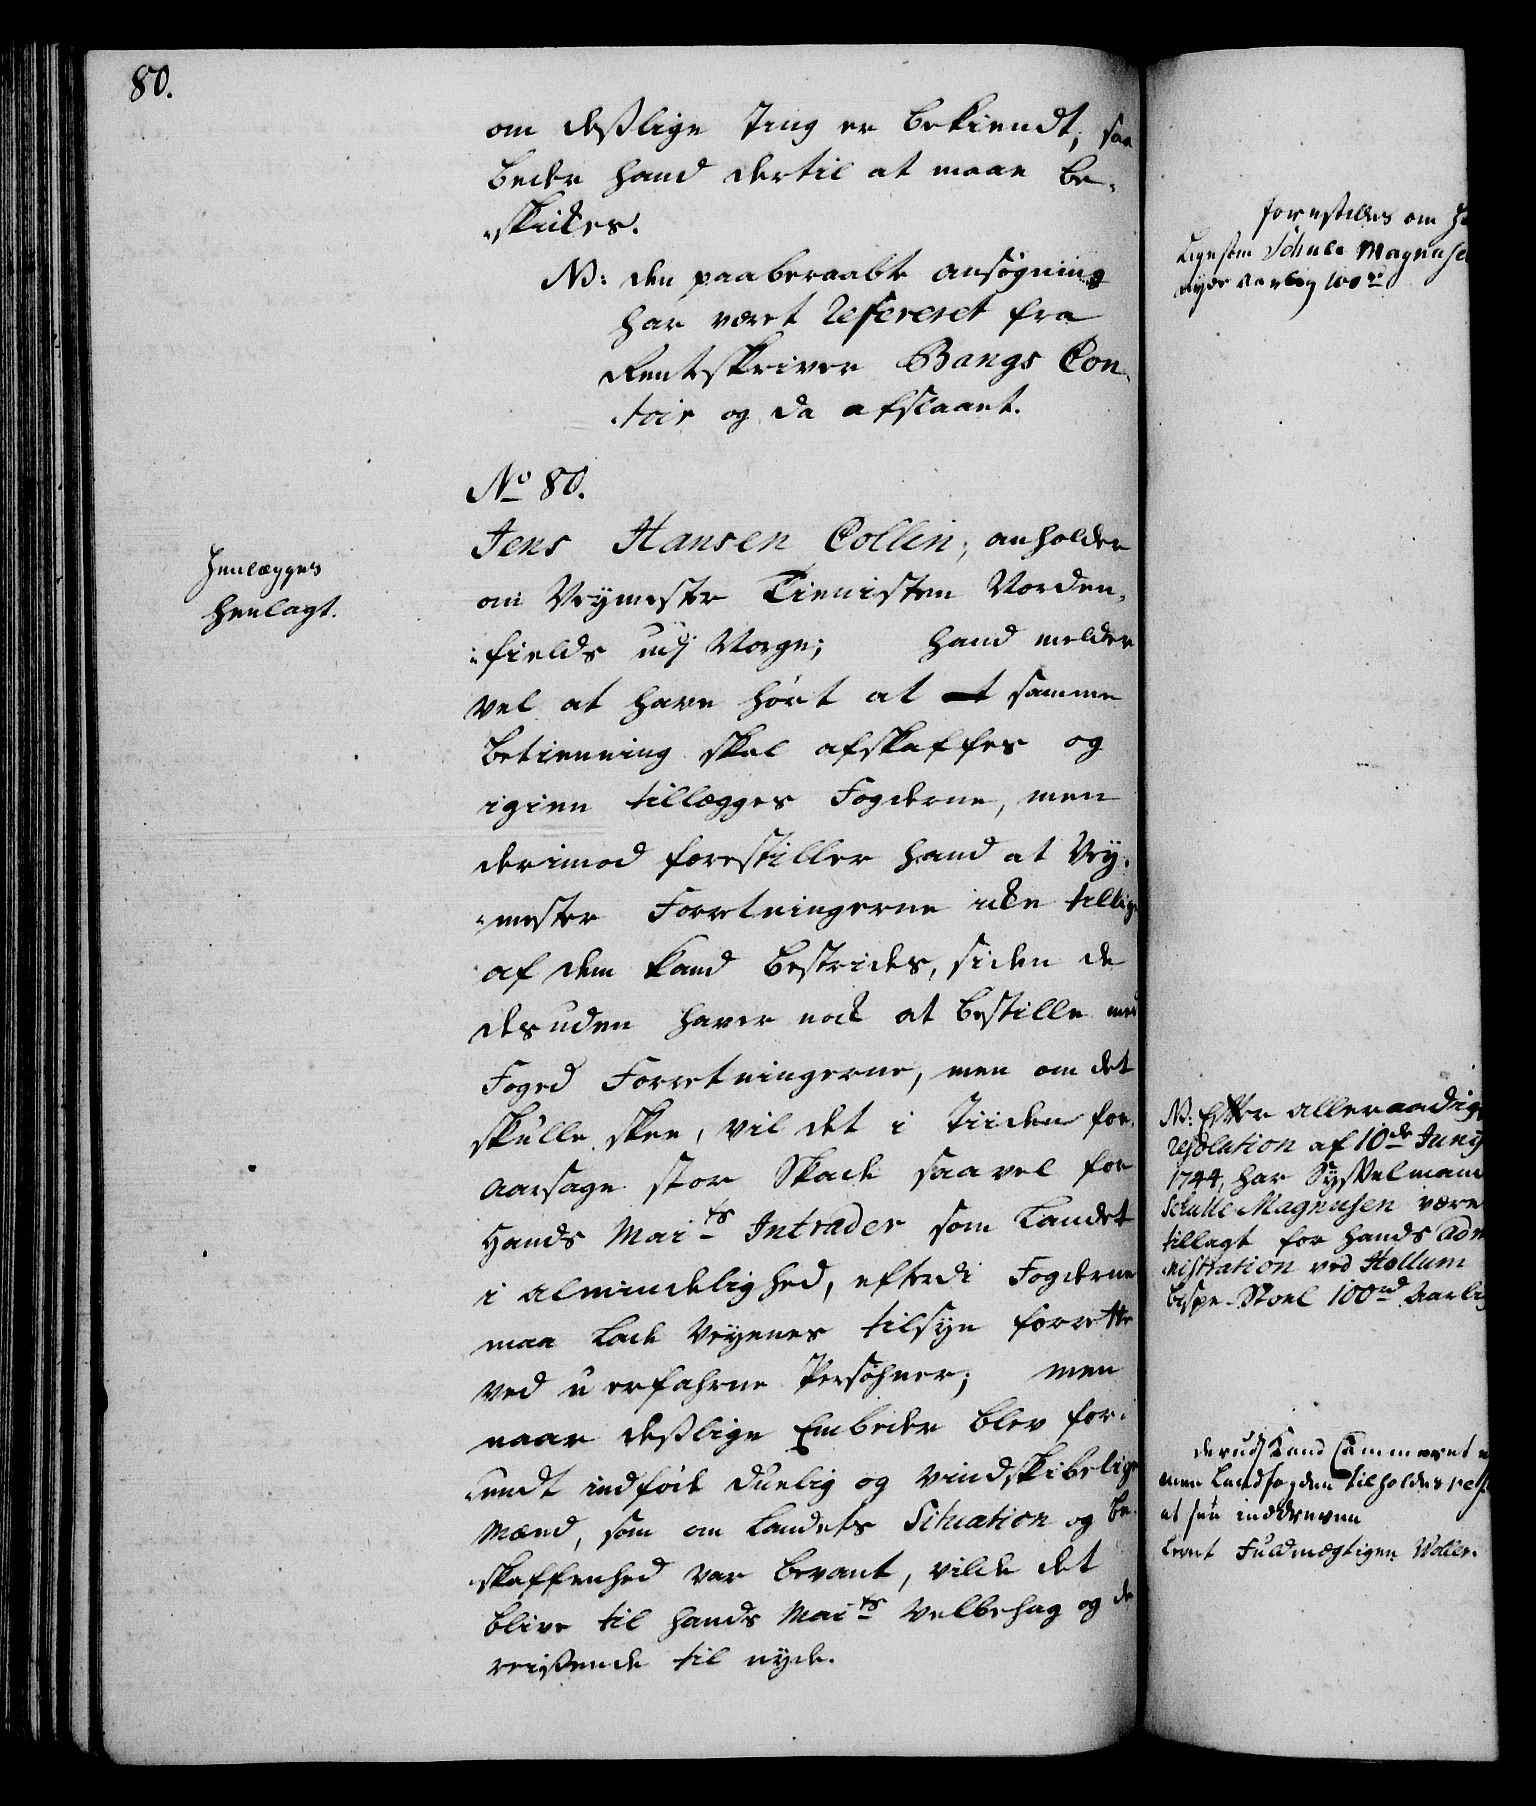 80.
om desslige Ting er bekiendt, saa
beder hand dertil at maae be¬
„skikes.
NB: den paaberaabte ansøgning
har været Refereret fra
Rentskriver Bangs Con¬
„toir og da afslaaet.
No 80.
Jens Hansen Collin, anholder
om Veymester Tienisten Norden¬
„fields udj Norge; hand melder
vel at have hørt at samme
betienning skal afskaffes og
igien tillægges Fogderne, men
derimod forestiller hand at Vey¬
„mester Forretningerne icke tillige
af dem kand bestrides, siden de
desuden haver nok at bestille med
Foged Forretningerne, men om det
skulle skee, vil det i Tiiden for¬
aarsage stor Skade saavel for
Hands Maits Intrader som Landet
i almindelighed, efterdi Fogderne
maa lade Veyenes tilsyn forrette
ved uerfahrne Persohner; men
naar desslige Embeder blev for¬
„undt indfødt duelig og vindskibelige
Mænd, som om Landets Situation og be¬
„skaffenhed var bevant, vilde det
blive til hands Maits Velbehag og de
reissende til nyde.
Henlægges
henlagt.
forestilles om
ligesom Schule Magnuse
nyde aarlig 100 rd
NB. Efter allernaadigs
resolution af 10de Junij
1744, har Sysselmand
Schulle Magnusen være
tillagt for hands Adm
„nistration ved Hollum
bispe-Stoel 100 rd Aarlig
derudj kand Cammeret
men Landfogden tilholdes
at faae inddreven
levert Fuldmægtigen Moller.